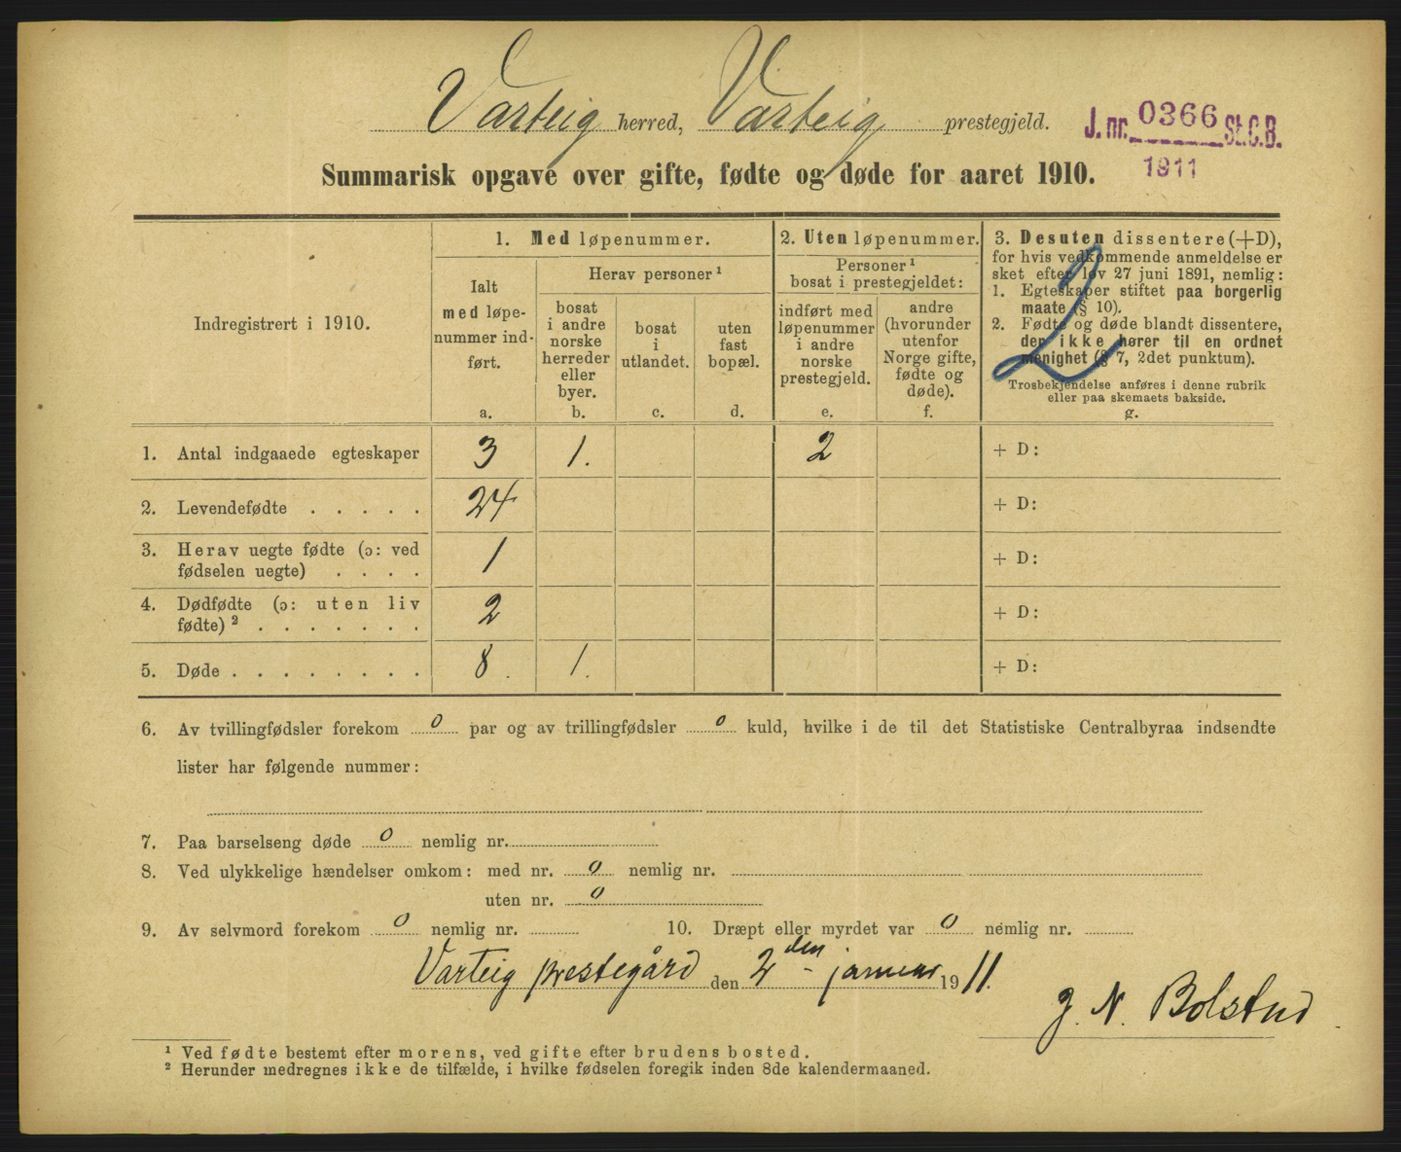 Varteig herred, Varteig prestegjeld.
J. nr. 0366 St.C.B.
1911
Summarisk opgave over gifte, fødte og døde for aaret 1910.
Indregistrert i 1910.
1. Med løpenummer.
Ialt
med løpe-
nummer ind-
ført.
a.
Herav personer¹
bosat
i andre
norske
herreder
eller
byer.
b.
bosat
i
utlandet.
c.
uten
fast
bopæl.
d.
2. Uten løpenummer.
Personer¹
bosat i prestegjeldet:
indført med
løpenummer
i andre
norske
prestegjeld.
e.
andre
(hvorunder
utenfor
Norge gifte,
fødte og
døde).
f.
3. Desuten dissentere (+D),
for hvis vedkommende anmeldelse er
sket efter lov 27 juni 1891, nemlig:
1. Egteskaper stiftet paa borgerlig
maate (§ 10).
2. Fødte og døde blandt dissentere,
der ikke hører til en ordnet
menighet (§ 7, 2det punktum).
Trosbekjendelse anføres i denne rubrik
eller paa skemaets bakside.
g.
2
1. Antal indgaaede egteskaper 3 1. 2 + D:
2. Levendefødte . . . . . 24 + D:
3. Herav uegte fødte (ɔ: ved
fødselen uegte) . . . . 1 + D:
4. Dødfødte (ɔ: uten liv
fødte)² . . . . . . . 2 + D:
5. Døde . . . . . . . . 8. 1. + D:
6. Av tvillingfødsler forekom 0 par og av trillingfødsler 0 kuld, hvilke i de til det Statistiske Centralbyraa indsendte
lister har følgende nummer:
7. Paa barselseng døde 0 nemlig nr.
8. Ved ulykkelige hændelser omkom: med nr. 0 nemlig nr.
uten nr. 0
9. Av selvmord forekom 0 nemlig nr. 10. Dræpt eller myrdet var 0 nemlig nr.
Varteig prestegård den 2den januar 1911.
J. N. Bolstad
¹ Ved fødte bestemt efter morens, ved gifte efter brudens bosted.
² Herunder medregnes ikke de tilfælde, i hvilke fødselen foregik inden 8de kalendermaaned.